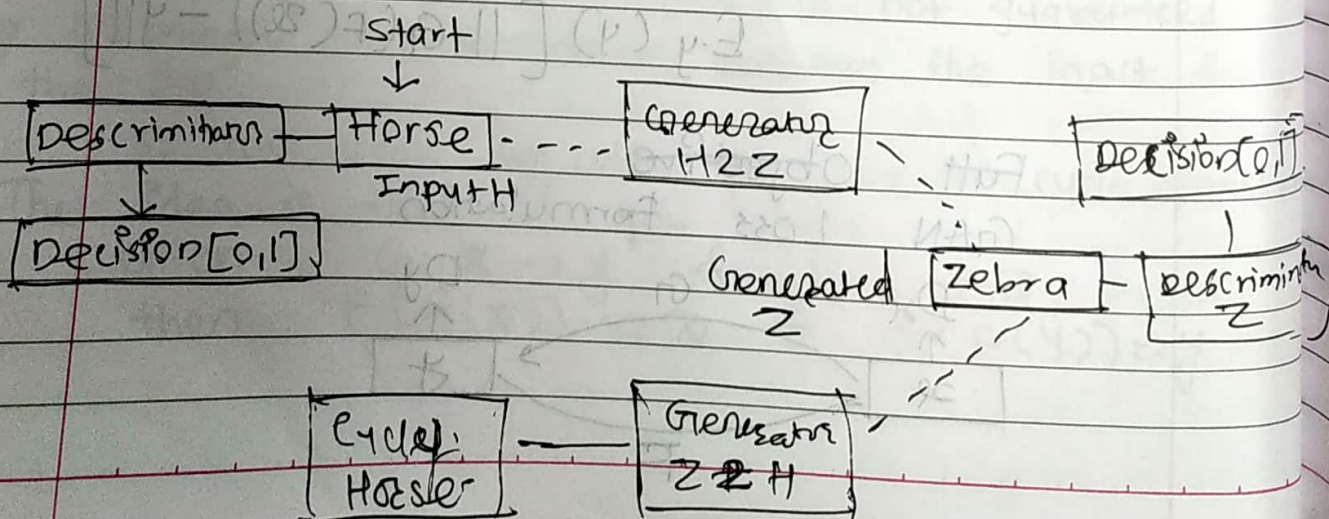 Start
Descriminator
Horse
Generator
H2Z
Decision[0,1]
Input H
Decision[0,1]
Generated
Z
Zebra
Descriminator
Z
Cycle
Horse
Generator
Z2H